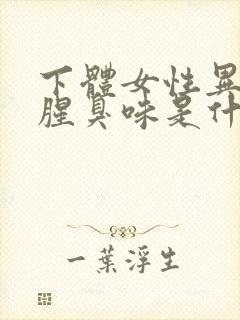 下體女性異
腥臭味是什
一葉浮生